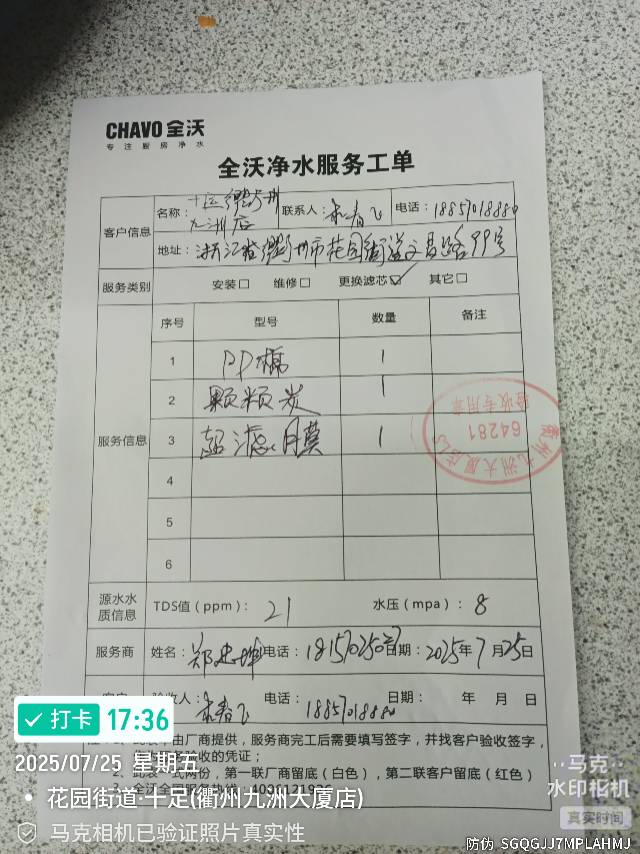 CHAVO 全沃
专注厨房净水
全沃净水服务工单
客户信息
名称: 十足衢州九洲店
联系人:
电话: 18857018880
地址: 浙江省衢州市花园街道文昌路99号
服务类别 安装□ 维修□ 更换滤芯☑ 其它□
服务信息
序号 型号 数量 备注
1 PP棉 1
2 颗颗炭 1
3 超滤膜 1
4
5
6
衢州九洲大厦店
64281
验收专用章
源水水质信息 TDS值(ppm): 21 水压(mpa): 8
服务商 姓名: 郑忠坤 电话: 日期: 2025年7月25日
客户 验收人: 电话: 18857018880 日期: 年 月 日
由厂商提供,服务商完工后需要填写签字,并找客户验收签字,
收的凭证;
2、此表一式两份,第一联厂商留底(白色),第二联客户留底(红色)
3、全沃全国服务热线:
打卡 17:36
2025/07/25 星期五
花园街道·十足(衢州九洲大厦店)
马克相机已验证照片真实性
马克
水印相机
真实时间
防伪 SGQGJJ7MPLAHMJ